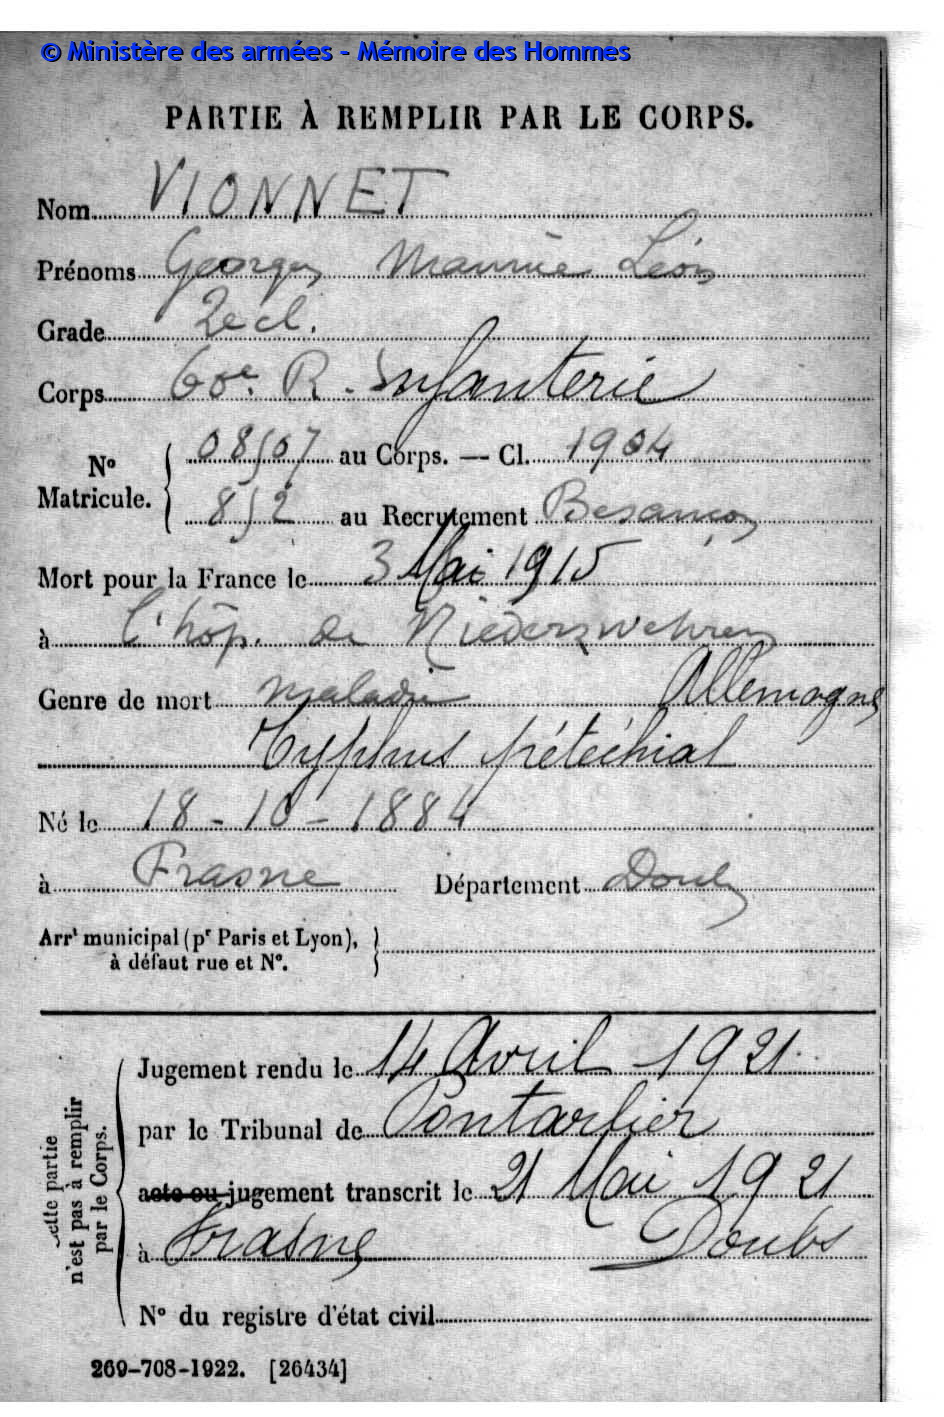 © Ministère des armées - Mémoire des Hommes
PARTIE À REMPLIR PAR LE CORPS.
Nom VIONNET
Prénoms Georges Maurice Léon
Grade 2e cl.
Corps 60e. R. Infanterie
No Matricule. { 08507 au Corps. — Cl. 1904
852 au Recrutement Besançon
Mort pour la France le 3 Mai 1915
à l'hôp. de Niederzwehren
Allemagne
Genre de mort maladie
Typhus pétéchial
Né le 18 - 10 - 1884
à Frasne Département Doubs
Arrt municipal (pr Paris et Lyon),
à défaut rue et No.
Cette partie
n'est pas à remplir
par le Corps.
Jugement rendu le 14 Avril 1921.
par le Tribunal de Pontarlier
acte ou jugement transcrit le 21 Mai 1921
à Frasne Doubs
No du registre d'état civil
269-708-1922. [26434]